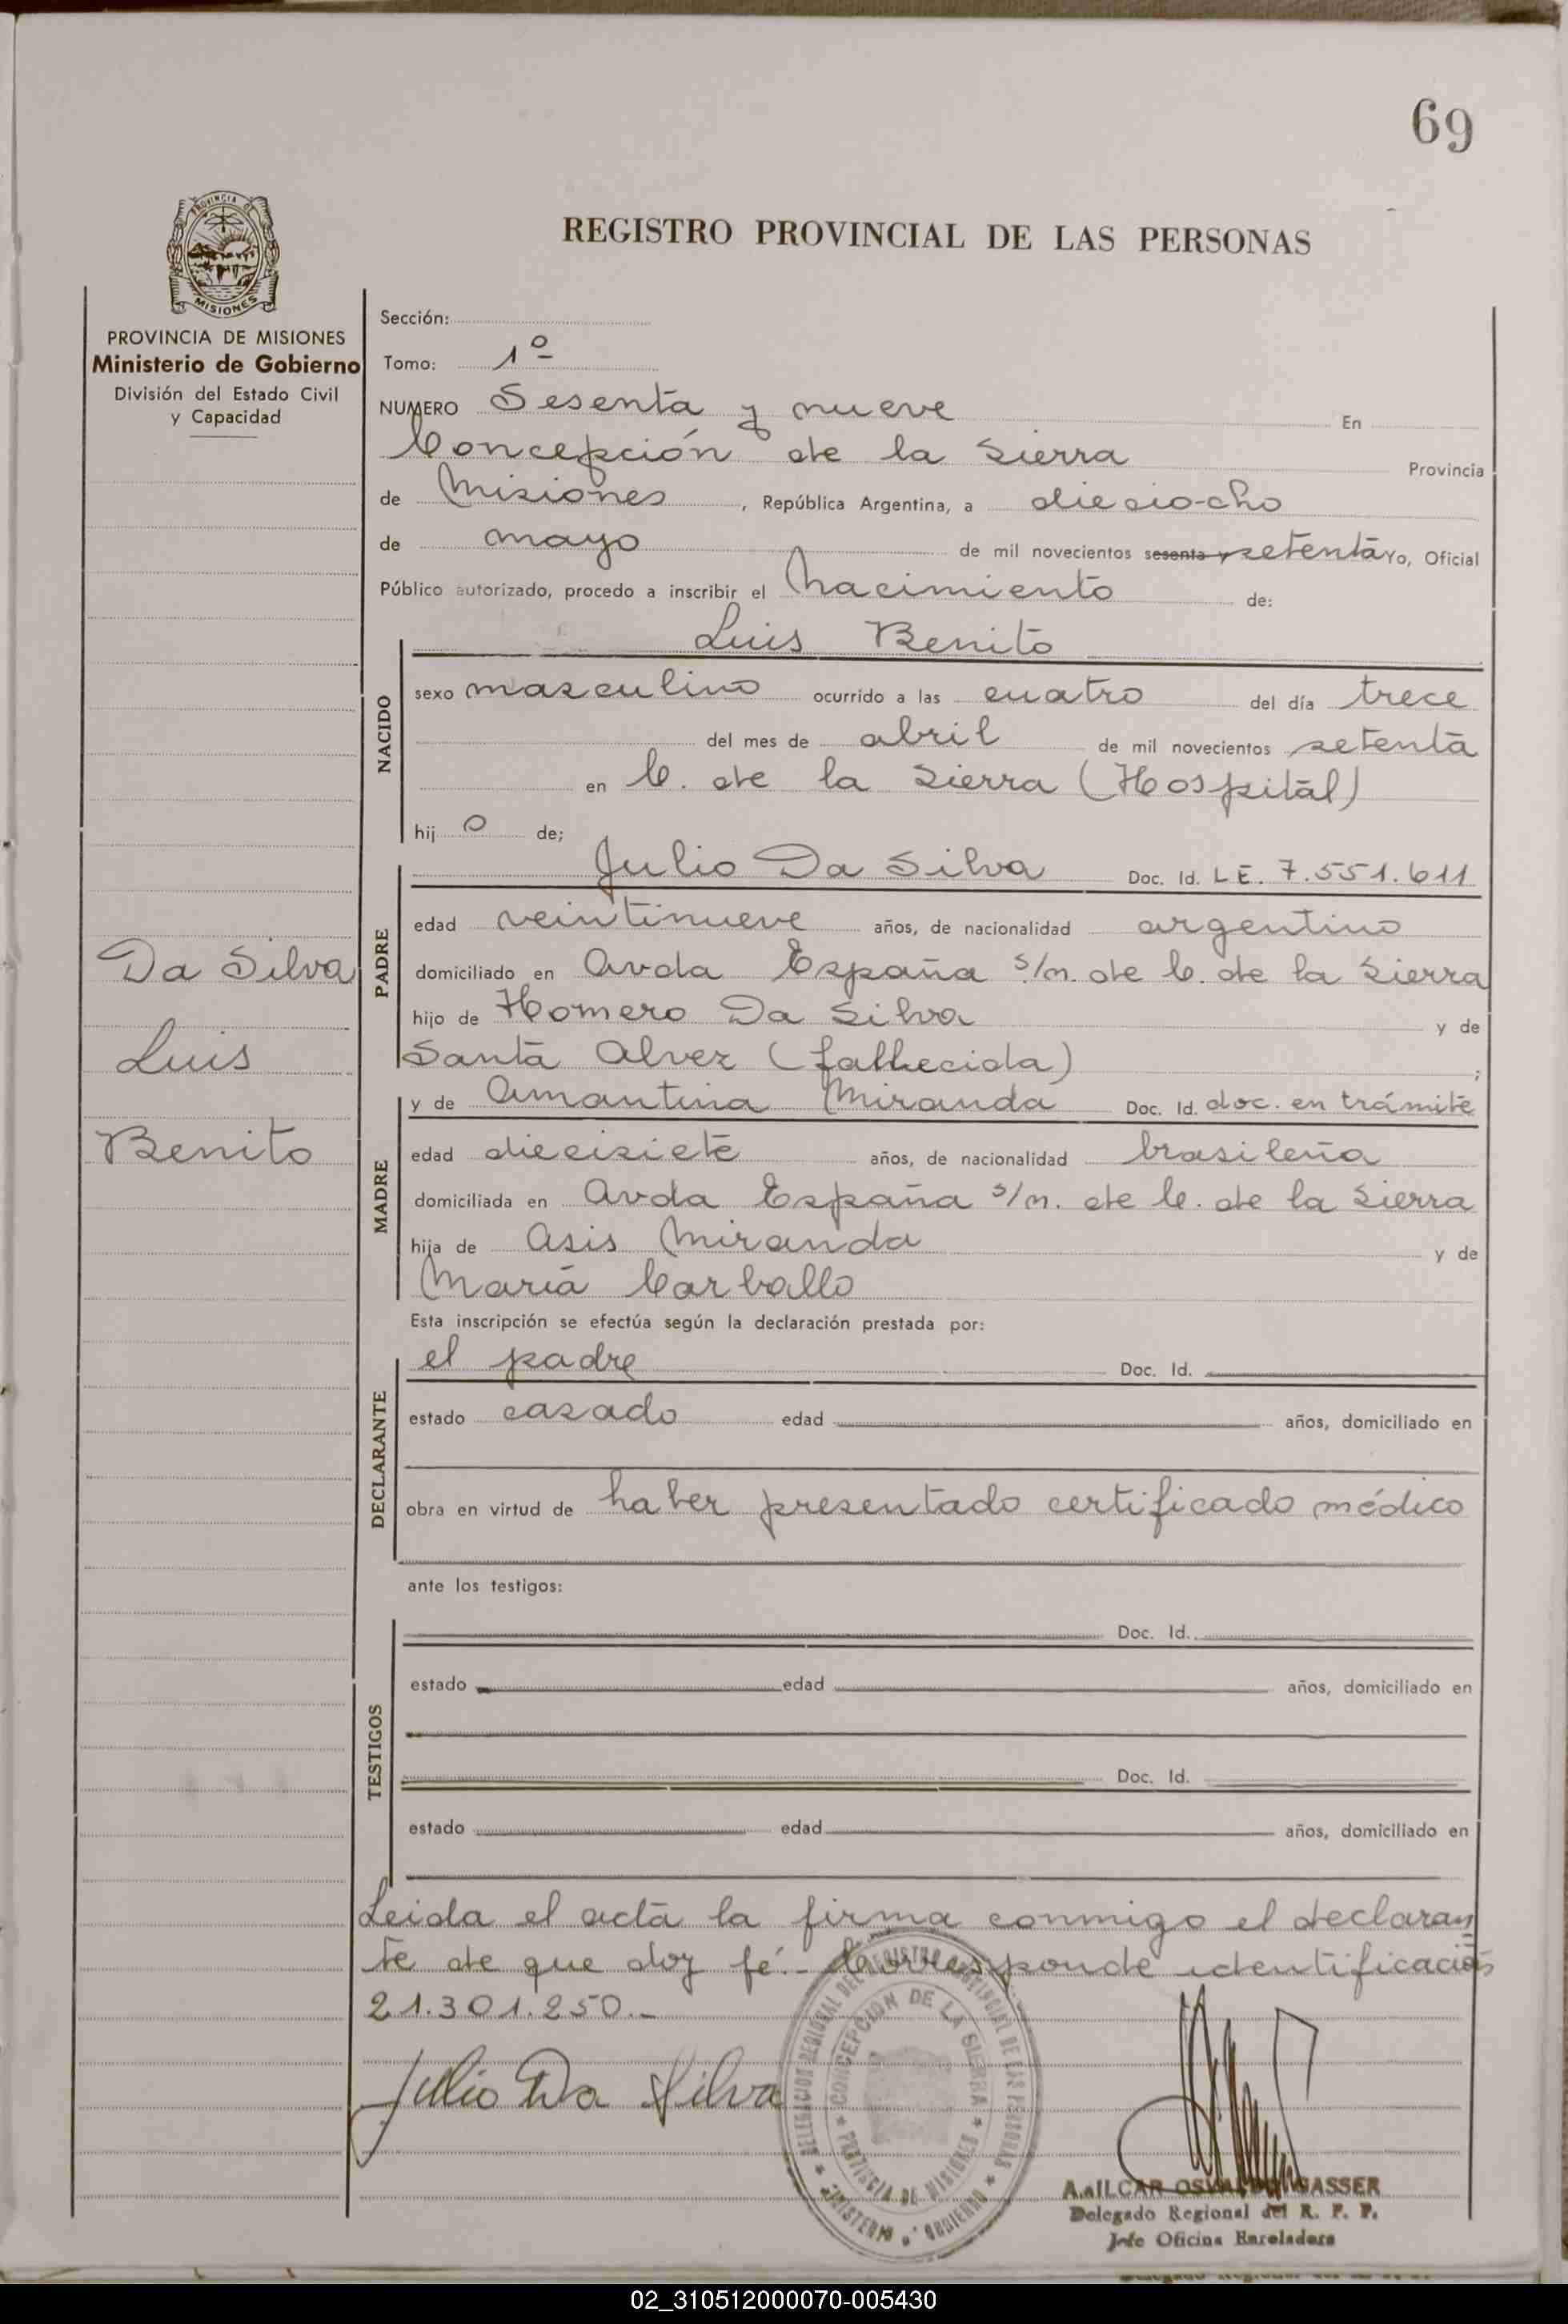 69
PROVINCIA DE
MISIONES
REGISTRO PROVINCIAL DE LAS PERSONAS
PROVINCIA DE MISIONES
Ministerio de Gobierno
División del Estado Civil
y Capacidad
Sección:
Tomo: 1º
NUMERO Sesenta y nueve En
Concepción de la Sierra Provincia
de Misiones, República Argentina, a dieciocho
de mayo de mil novecientos sesenta y setenta Yo, Oficial
Público autorizado, procedo a inscribir el Nacimiento de:
NACIDO
Luis Benito
sexo masculino ocurrido a las cuatro del día trece
del mes de abril de mil novecientos setenta
en C. de la Sierra (Hospital)
hij o de;
PADRE
Julio Da Silva Doc. Id. L E. 7.551.611
edad veintinueve años, de nacionalidad argentino
domiciliado en Avda España s/n. de C. de la Sierra
hijo de Homero Da Silva y de
Santa Alvez (fallecida) ;
Da Silva
Luis
Benito
MADRE
y de Amantina Miranda Doc. Id. doc. en trámite
edad diecisiete años, de nacionalidad brasileña
domiciliada en Avda España s/n. de C. de la Sierra
hija de Asis Miranda y de
María Carballo
Esta inscripción se efectúa según la declaración prestada por:
DECLARANTE
el padre Doc. Id.
estado casado edad años, domiciliado en
obra en virtud de haber presentado certificado médico
ante los testigos:
TESTIGOS
Doc. Id.
estado edad años, domiciliado en
Doc. Id.
estado edad años, domiciliado en
Leida el acta la firma conmigo el declaran
te de que doy fé.- Corresponde identificación
21.301.250.-
Julio Da Silva
DELEGACION REGIONAL DEL REGISTRO PROVINCIAL DE LAS PERSONAS
CONCEPCION DE LA SIERRA
PROVINCIA DE MISIONES
MINISTERIO GOBIERNO
GASSER
Delegado Regional del R. P. P.
Jefe Oficina
02_310512000070-005430